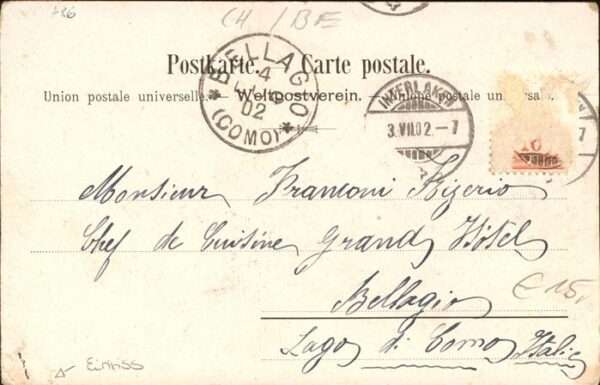 786
CH / BE
Postkarte. Carte postale.
Union postale universelle. Weltpostverein. Unione postale universale.
BELLAGIO
4
02
(COMO)
INTERLAKEN
3.VII.02.-7
10
7
Monsieur Franconi
Chef de Cuisine Grand Hôtel
Bellagio
Lago di Como Italie
€ 15.
Einriss